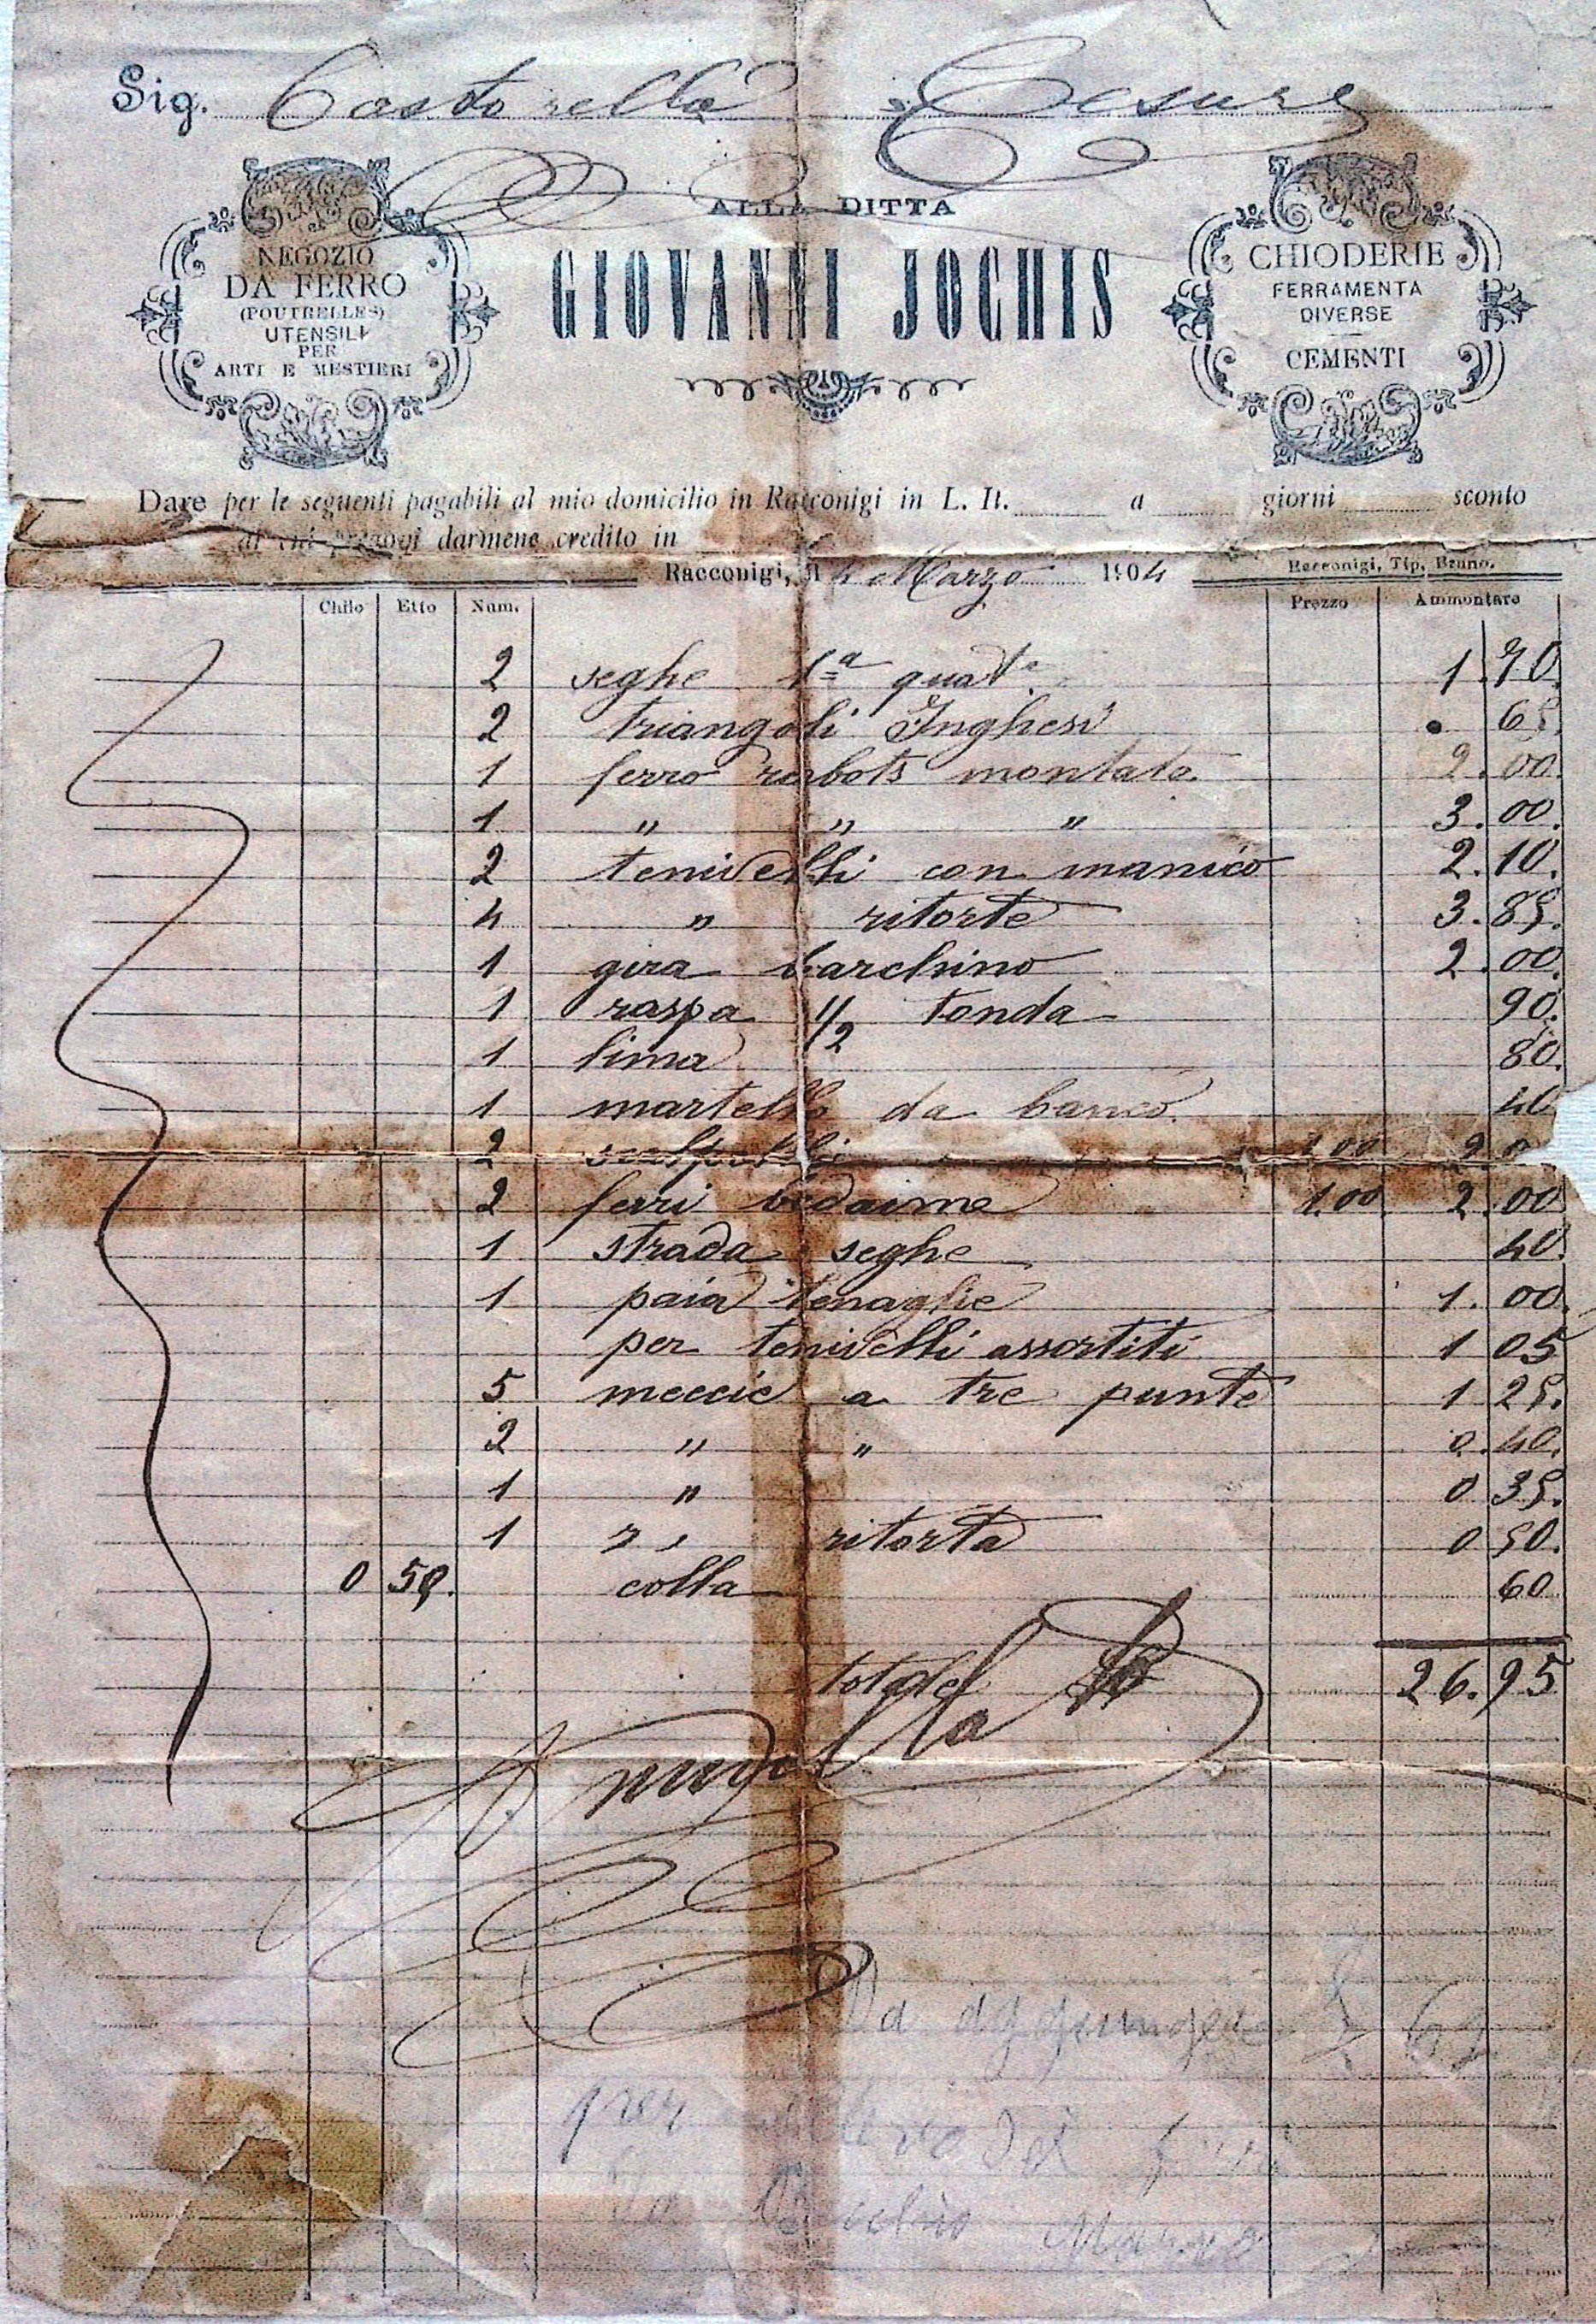 Sig. Castorella Cesare
ALLA DITTA
GIOVANNI JOCHIS
NEGOZIO
DA FERRO
(POUTRELLES)
UTENSILI
PER
ARTI E MESTIERI
CHIODERIE
FERRAMENTA
DIVERSE
CEMENTI
Dare per le seguenti pagabili al mio domicilio in Racconigi in L. It. a giorni sconto
di cui pregovi darmene credito in
Racconigi, li 4 Marzo 1904
Racconigi, Tip. Bruno.
Chilo Etto Num. Prezzo Ammontare
2 seghe 1ª qualª 1.70
2 triangoli Inghesi . 65
1 ferro rabots montato 2.00
1 " " " 3.00.
2 tenivelli con manico 2.10.
4 " ritorte 3.85.
1 gira barchino 2.00
1 raspa 1/2 tonda 90.
1 lima 80.
1 martello da banco. 40
2 1.00 2
2 ferri bedaime 1.00 2.00
1 strada seghe 40.
1 paia tenaglie 1.00.
per tenivelli assortiti 1 05
5 meccie a tre punte 1 25.
2 " " 0.40.
1 " 0 35.
1 " ritorta 0 50.
0 50. colla 60
totale 26.95
Da aggiungere 
per